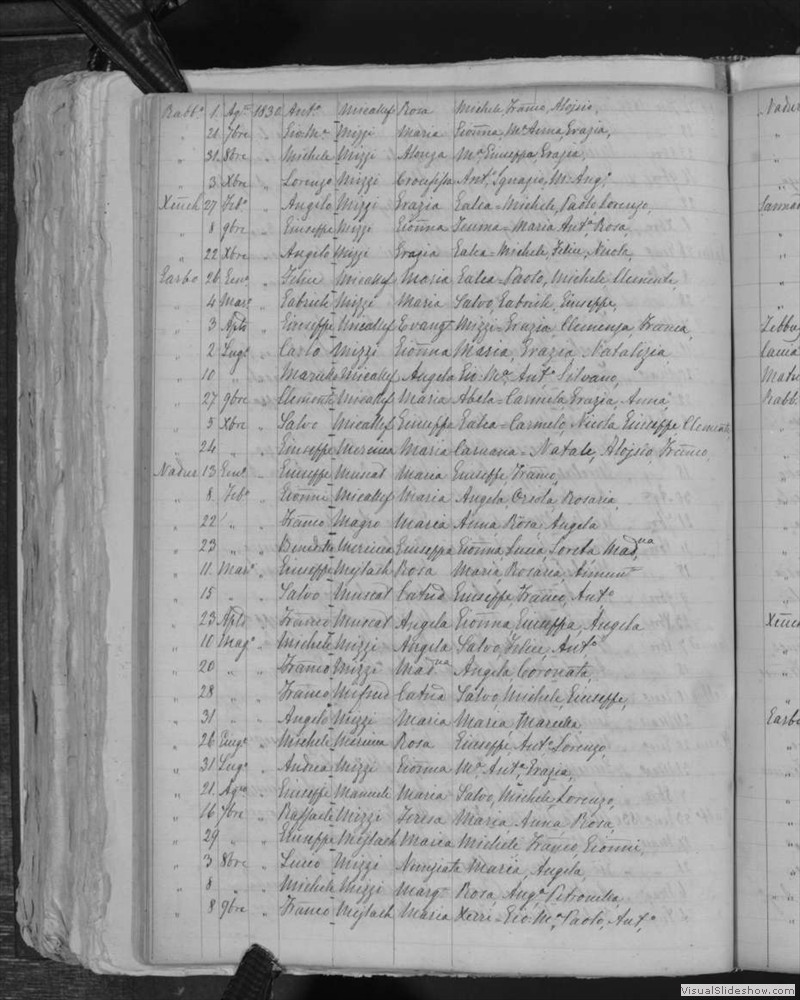 Rabbo 1 Agto 1830 Anto Micallef Rosa Michele, Franco, Aloisio,
" 21 7bre " Gio Ma Mizzi Maria Gionna, Ma Anna, Grazia,
" 31 8bre " Michele Mizzi Ma Giuseppa Grazia,
" 3 Xbre " Lorenzo Mizzi Crocifissa Anto Ignazio, M. Ango
Xeuch 27 Febo " Angelo Mizzi Grazia Galea = Michele, Paolo Lorenzo,
" 8 9bre " Giuseppe Mizzi Gionna Gemma = Maria Anta Rosa,
" 22 Xbre " Angelo Mizzi Grazia Galea = Michele, Felice, Nicola,
Garbo 26 Geno " Felice Micallef Maria Galea = Paolo, Michele Clemente,
" 4 Maro " Gabriele Mizzi Maria Salvo, Gabriele, Giuseppe,
" 3 Aple " Giuseppe Micallef Evangta Mizzi = Grazia, Clemenza Franca,
" 2 Lugo " Carlo Mizzi Gionna Maria, Grazia, Natalizia,
" 10 " " Micallef Angela Gio Ma Anto Silvano,
" 27 9bre " Clemente Micallef Maria Abela = Carmela, Grazia, Anna,
" 5 Xbre " Salvo Micallef Giuseppa Galea = Carmelo, Nicola Giuseppe Clemente,
" 24 " " Giuseppe Mercieca Maria Caruana = Natale, Aloisio, Franco,
Nadur 13 Geno " Giuseppe Muscat Maria Giuseppe, Franco,
" 8 Febo " Gionni Micallef Maria Angela Orsola, Rosaria,
" 22 " " Franco Magro Maria Anna Rosa Angela
" 23 " " Benedo Giuseppa Gionna Lucia Loreta Madna
" 11 Maro " Giuseppe Mejlach Rosa Maria Rosaria,
" 15 " " Salvo Muscat Catna Giuseppe, Franco, Anto
" 23 Aple " Franco Muscat Angela Gionna Giuseppa, Angela
" 10 Mago " Michele Mizzi Angela Salvo, Felice, Anto
" 20 " " Franco Mizzi Madna Angela, Coronata,
" 28 " " Franco Mifsud Catna Salvo, Michele, Giuseppe,
" 31 " " Angelo Mizzi Maria Maria
" 26 Giugo " Michele Rosa Giuseppe, Anto Lorenzo,
" 31 Lugo " Andrea Mizzi Gionna Ma Anta Grazia,
" 21 Agto " Giuseppe Manuele Maria Salvo, Michele, Lorenzo,
" 16 7bre " Raffaele Mizzi Teresa Maria Anna Rosa,
" 29 " " Giuseppe Mejlach Maria Michele Franco Gionni,
" 3 8bre " Lucio Mizzi Nunziata Maria, Angela,
" 8 " " Michele Mizzi Marga Rosa Anga Petronilla,
" 8 9bre " Franco Mejlach Maria Xerri = Gio Ma Paolo, Anto
Nadur
Sannat
Zebbug
Rabbo
Xeuch
Garbo
VisualSlideshow.com